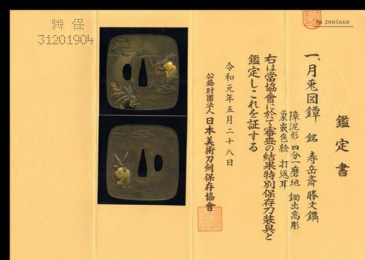 鑑定書
№ 2005660
一、月兎図鐔 銘 寿岳斎勝文鐫
障泥形 四分一磨地 鋤出高彫
象嵌色絵 打返耳
右は當協會に於て審査の結果特別保存刀装具と
鑑定しこれを証する
令和元年五月二十八日
公益財團法人日本美術刀劍保存協會
特保
31201904